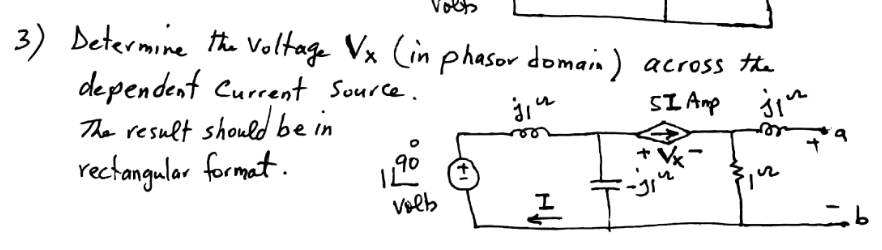 volts
3) Determine the Voltage Vx (in phasor domain) across the
dependent Current Source.
The result should be in
rectangular format.
j1Ω
5I Amp
j1Ω
+ a
+ Vx -
1∠90°
volts
+
-
-j1Ω
1Ω
I
- b